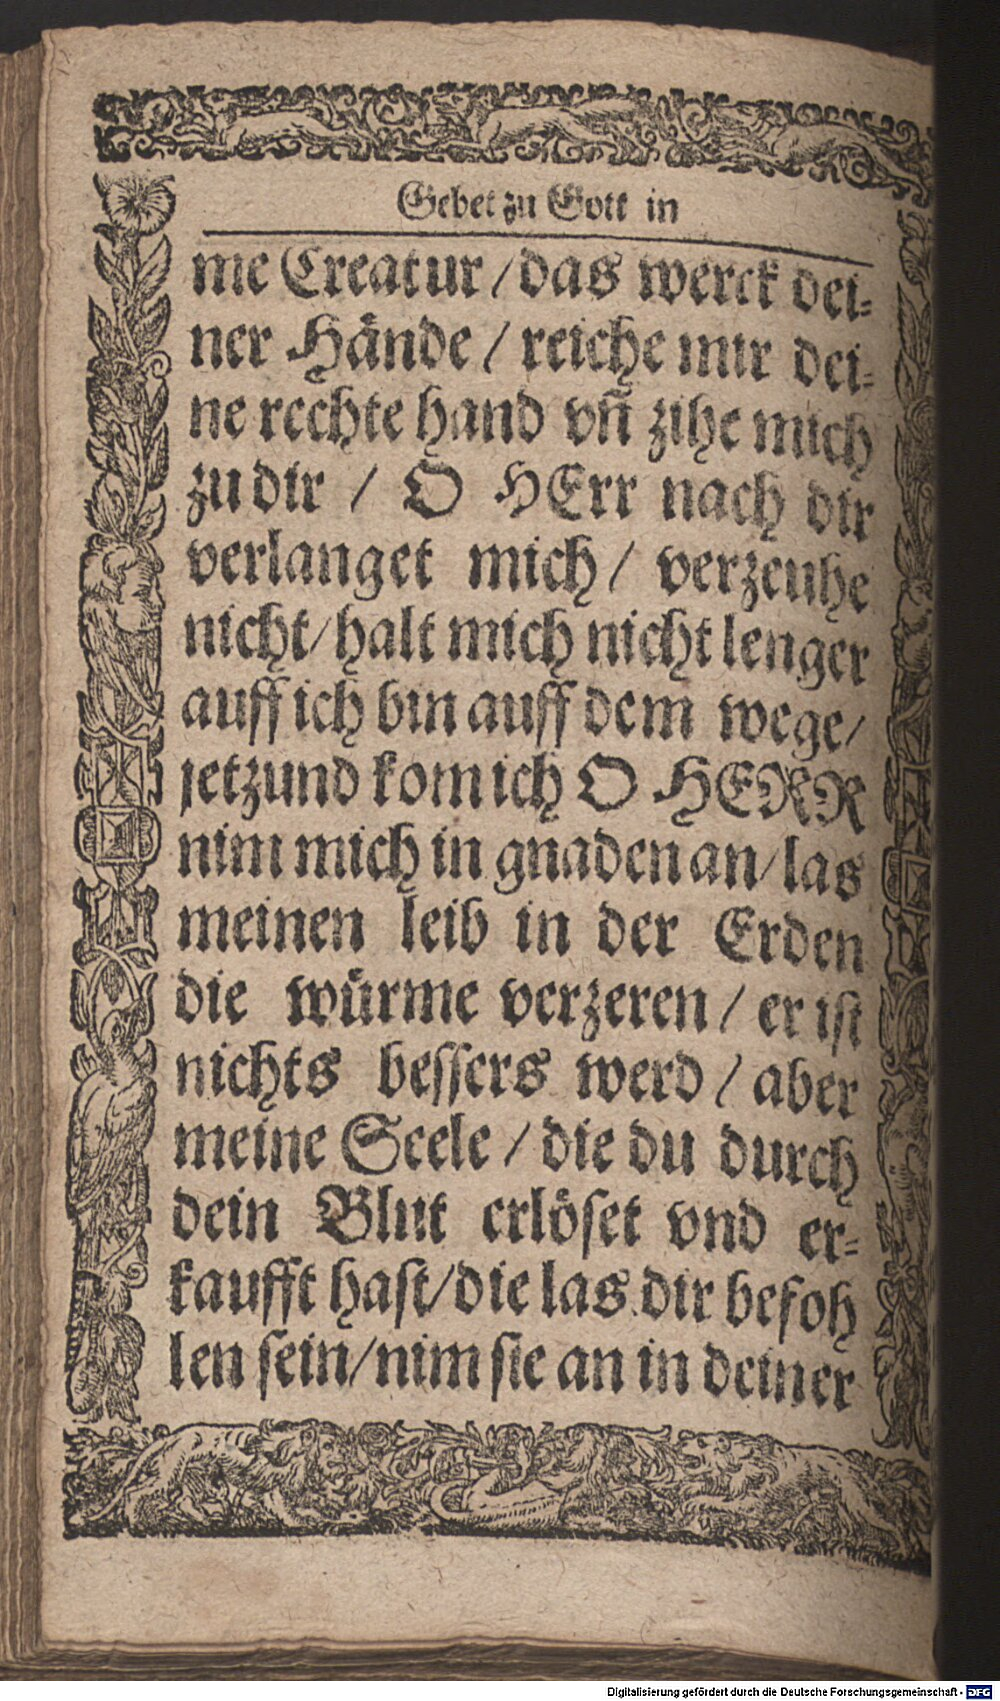 Gebet zu Gott in
me Creatur / das werck dei⸗
ner Hände / reiche mir dei⸗
ne rechte hand vñ zihe mich
zu dir / O HErr nach dir
verlanget mich / verzeuhe
nicht / halt mich nicht lenger
auff ich bin auff dem wege /
jetzund kom ich O HERR
nim mich in gnaden an / las
meinen leib in der Erden
die würme verzeren / er ist
nichts bessers werd / aber
meine Seele / die du durch
dein Blut erlöset vnd er⸗
kaufft hast / die las dir befoh
len sein / nim sie an in deiner
Digitalisierung gefördert durch die Deutsche Forschungsgemeinschaft - DFG